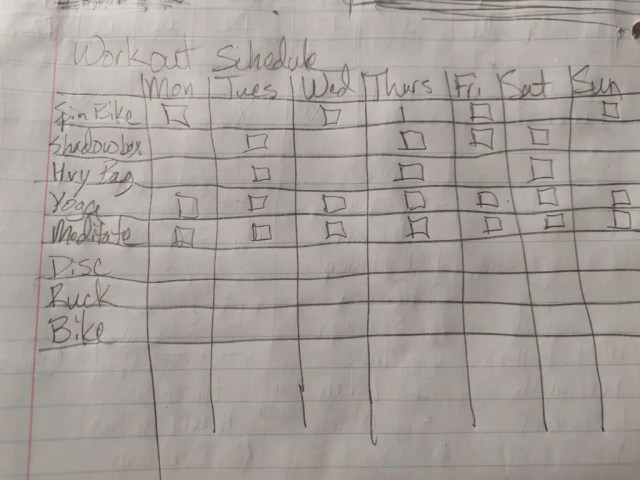 Workout Schedule
Mon Tues Wed Thurs Fri Sat Sun
Spin Bike
Shadowbox
Hvy Bag
Yoga
Meditate
Disc
Ruck
Bike